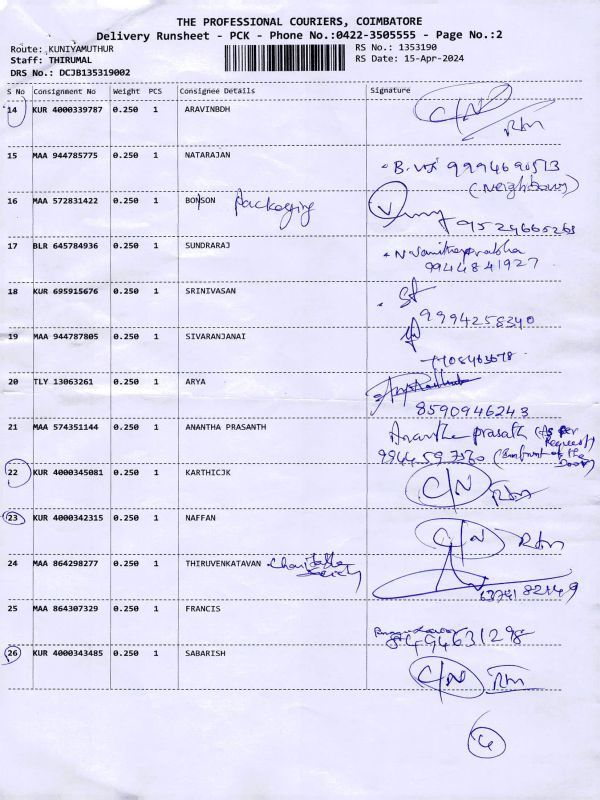 THE PROFESSIONAL COURIERS, COIMBATORE
Delivery Runsheet - PCK - Phone No.:0422-3505555 - Page No.:2
Route: KUNIYAMUTHUR
RS No.: 1353190
Staff: THIRUMAL
RS Date: 15-Apr-2024
DRS No.: DCJB135319002
S No Consignment No Weight PCS Consignee Details Signature
14 KUR 4000339787 0.250 1 ARAVINBDH C/N
15 MAA 944785775 0.250 1 NATARAJAN
9994690513
(Neighbour)
16 MAA 572831422 0.250 1 BONSON Packaging
9524665263
17 BLR 645784936 0.250 1 SUNDRARAJ
9944841927
18 KUR 695915676 0.250 1 SRINIVASAN
9994258340
19 MAA 944787805 0.250 1 SIVARANJANAI
7708463678
20 TLY 13063261 0.250 1 ARYA
8590946243
21 MAA 574351144 0.250 1 ANANTHA PRASANTH Anantha prasath (As per Request)
(Infront of the Door)
22 KUR 4000345081 0.250 1 KARTHICJK C/N
23 KUR 4000342315 0.250 1 NAFFAN C/N
24 MAA 864298277 0.250 1 THIRUVENKATAVAN Charitable Society
25 MAA 864307329 0.250 1 FRANCIS
26 KUR 4000343485 0.250 1 SABARISH C/N